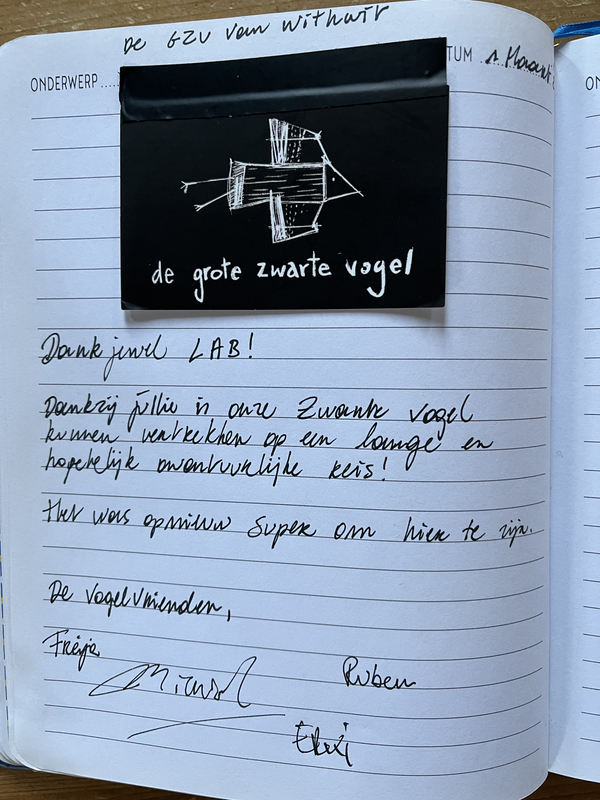 De GZV van Withuit
ONDERWERP.....
TUM ..... 1 Maart
de grote zwarte vogel
Dankjewel LAB!
Dankzij jullie is onze Zwarte vogel
kunnen vertrekken op een lange en
hopelijk avontuurlijke reis!
Het was opnieuw super om hier te zijn.
De vogelvrienden,
Freija
Ruben